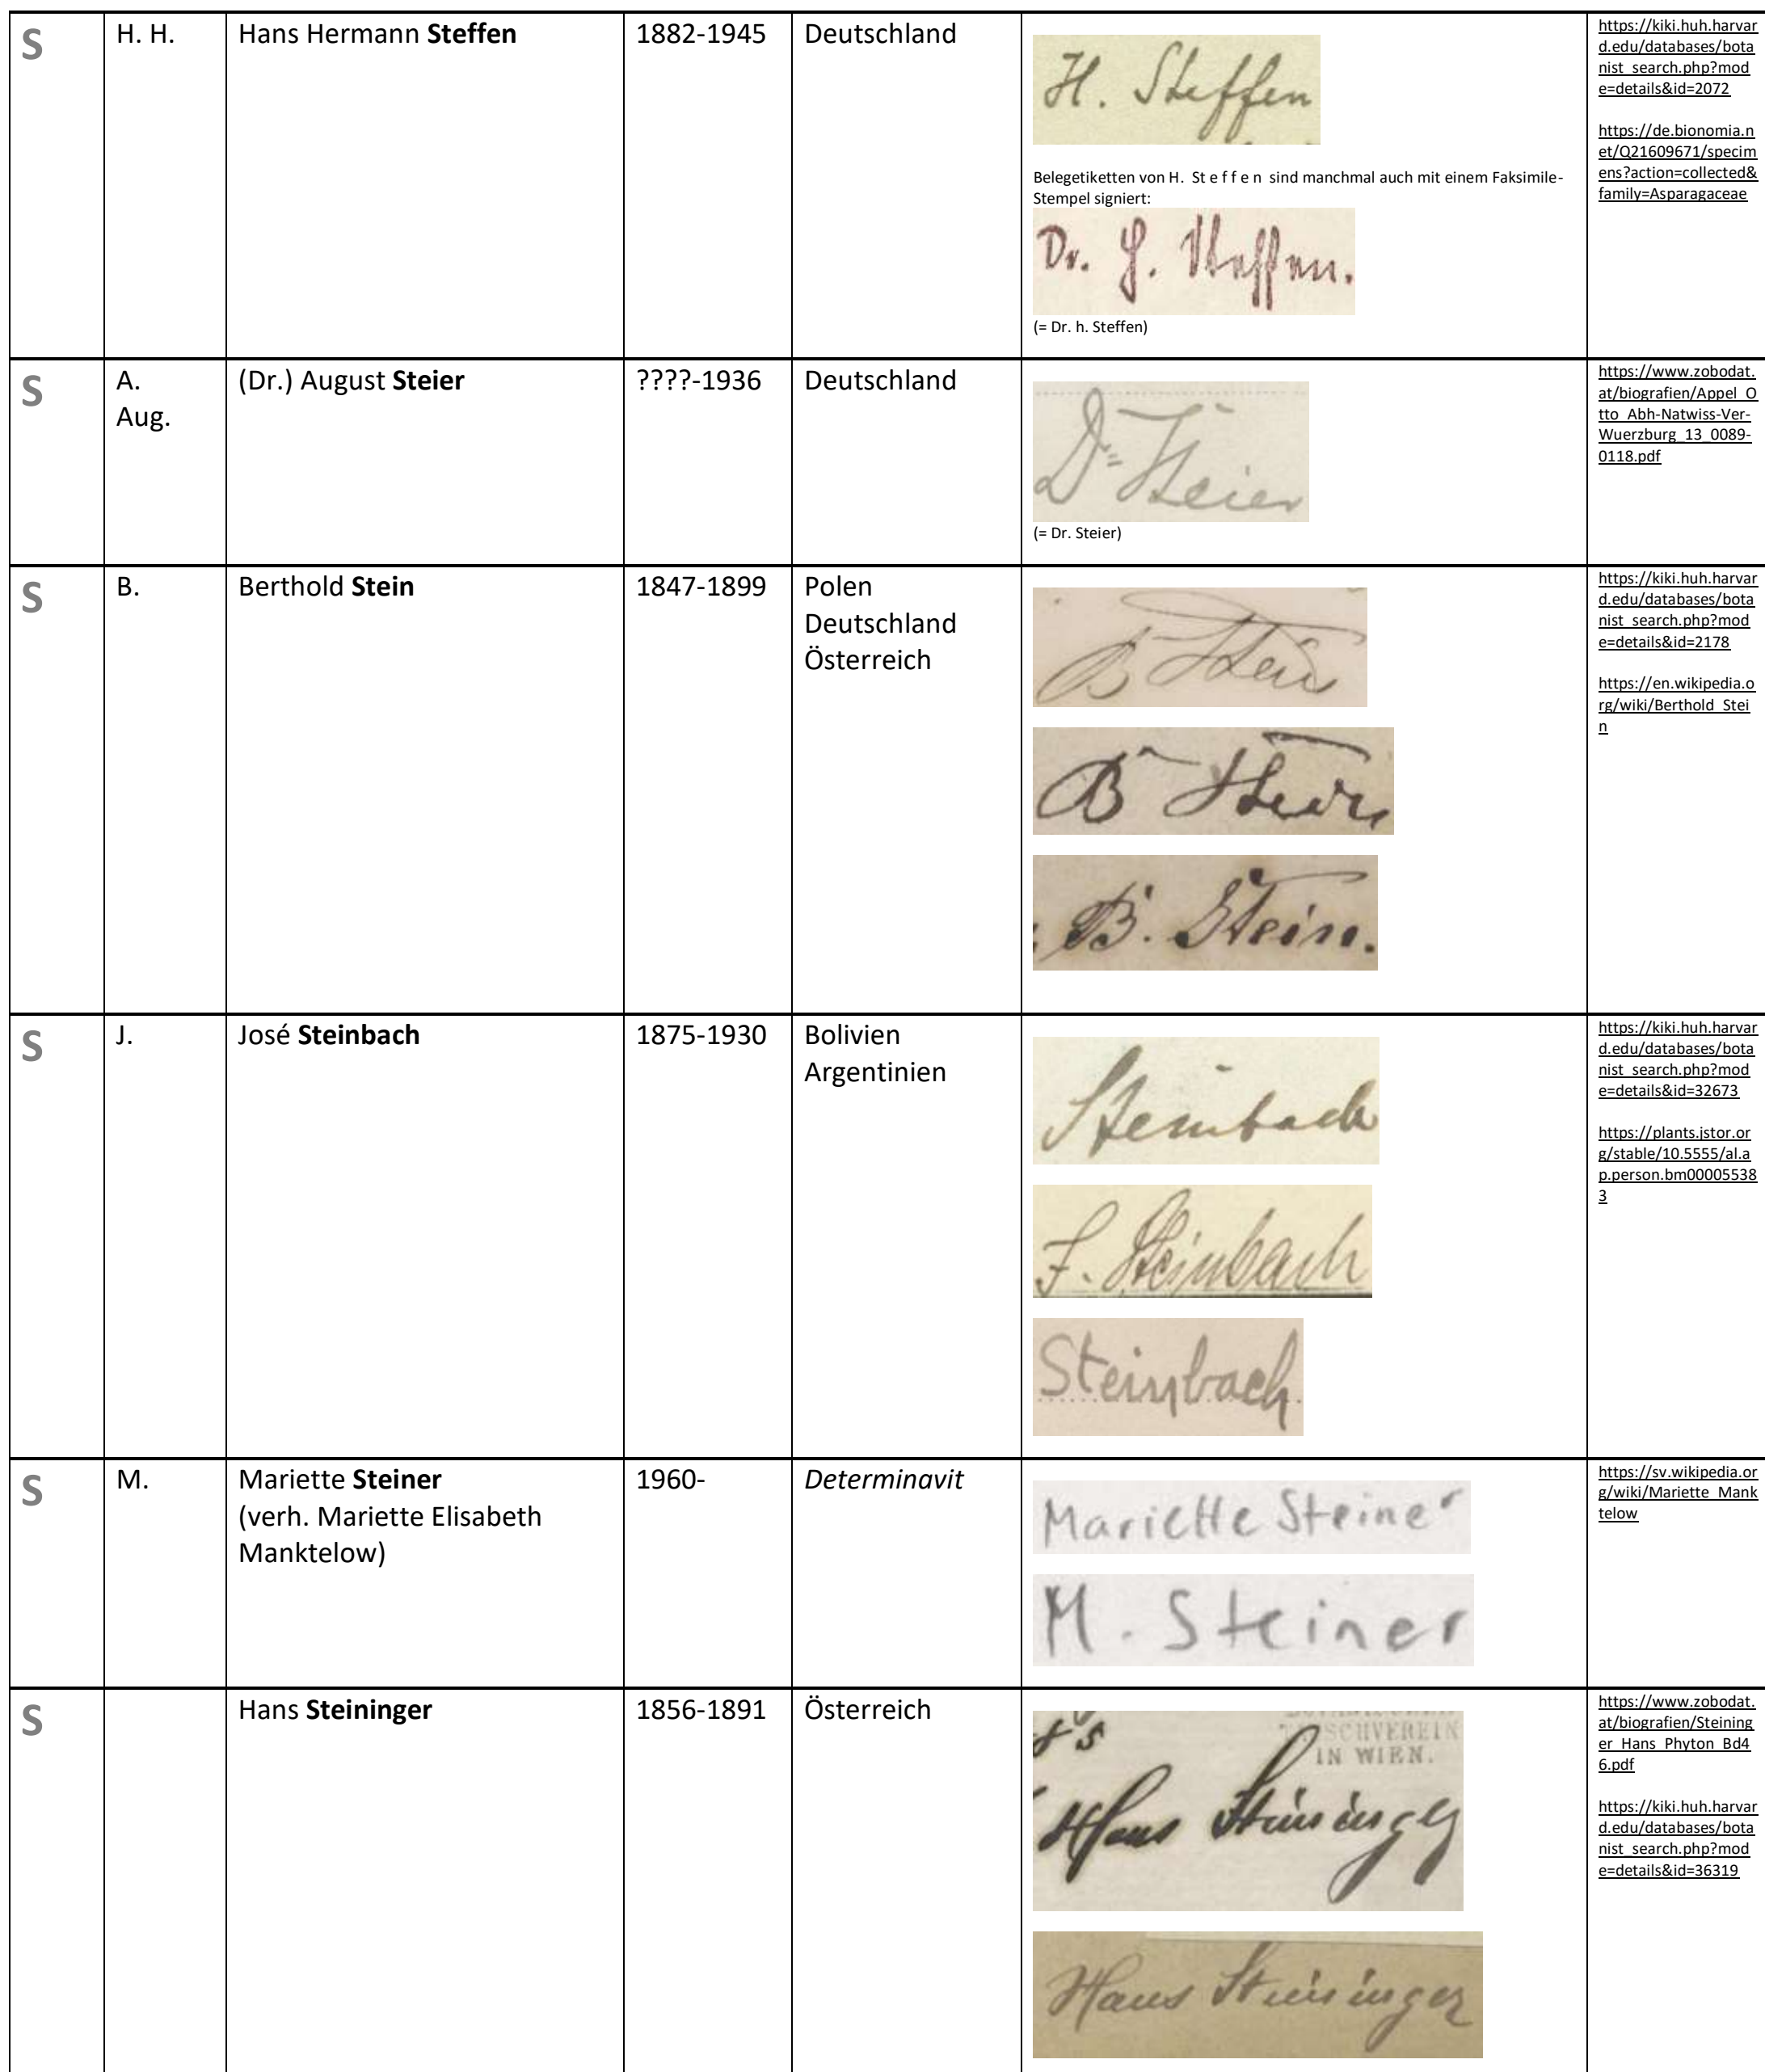 S
H. H.
Hans Hermann Steffen
1882-1945
Deutschland
H. Steffen
Belegetiketten von H. St e f f e n sind manchmal auch mit einem Faksimile-
Stempel signiert:
Dr. H. Steffen.
(= Dr. h. Steffen)
https://kiki.huh.harvar
d.edu/databases/bota
nist_search.php?mod
e=details&id=2072
https://de.bionomia.n
et/Q21609671/specim
ens?action=collected&
family=Asparagaceae
S
A.
Aug.
(Dr.) August Steier
????-1936
Deutschland
Dr Steier
(= Dr. Steier)
https://www.zobodat.
at/biografien/Appel_O
tto_Abh-Natwiss-Ver-
Wuerzburg_13_0089-
0118.pdf
S
B.
Berthold Stein
1847-1899
Polen
Deutschland
Österreich
B Stein
B Stein
B. Stein.
https://kiki.huh.harvar
d.edu/databases/bota
nist_search.php?mod
e=details&id=2178
https://en.wikipedia.o
rg/wiki/Berthold_Stei
n
S
J.
José Steinbach
1875-1930
Bolivien
Argentinien
Steinbach
J. Steinbach
Steinbach.
https://kiki.huh.harvar
d.edu/databases/bota
nist_search.php?mod
e=details&id=32673
https://plants.jstor.or
g/stable/10.5555/al.a
p.person.bm00005538
3
S
M.
Mariette Steiner
(verh. Mariette Elisabeth
Manktelow)
1960-
Determinavit
Mariette Steiner
M. Steiner
https://sv.wikipedia.or
g/wiki/Mariette_Mank
telow
S
Hans Steininger
1856-1891
Österreich
IN WIEN.
Hans Steininger
Hans Steininger
https://www.zobodat.
at/biografien/Steining
er_Hans_Phyton_Bd4
6.pdf
https://kiki.huh.harvar
d.edu/databases/bota
nist_search.php?mod
e=details&id=36319